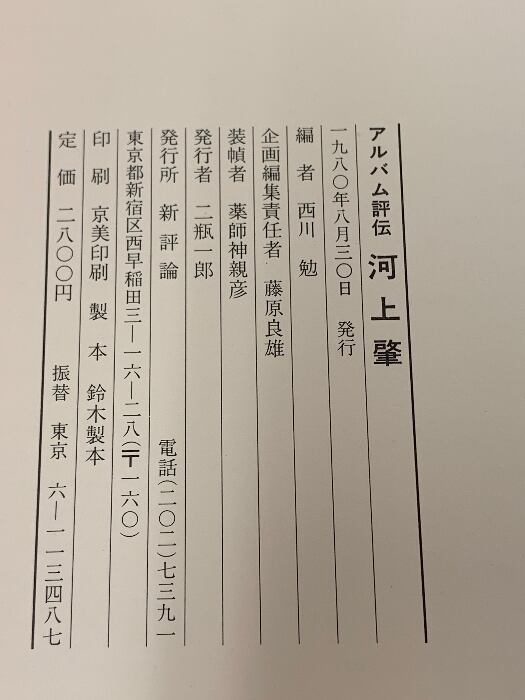 アルバム評伝 河上肇
一九八〇年八月三〇日 発行
編者 西川勉
企画編集責任者 藤原良雄
装幀者 薬師神親彦
発行者 二瓶一郎
発行所 新評論 電話(二〇二)七三九一
東京都新宿区西早稲田三―一六―二八(〒一六〇)
印刷 京美印刷 製本 鈴木製本
定価 二八〇〇円 振替 東京 六―一一三四八七